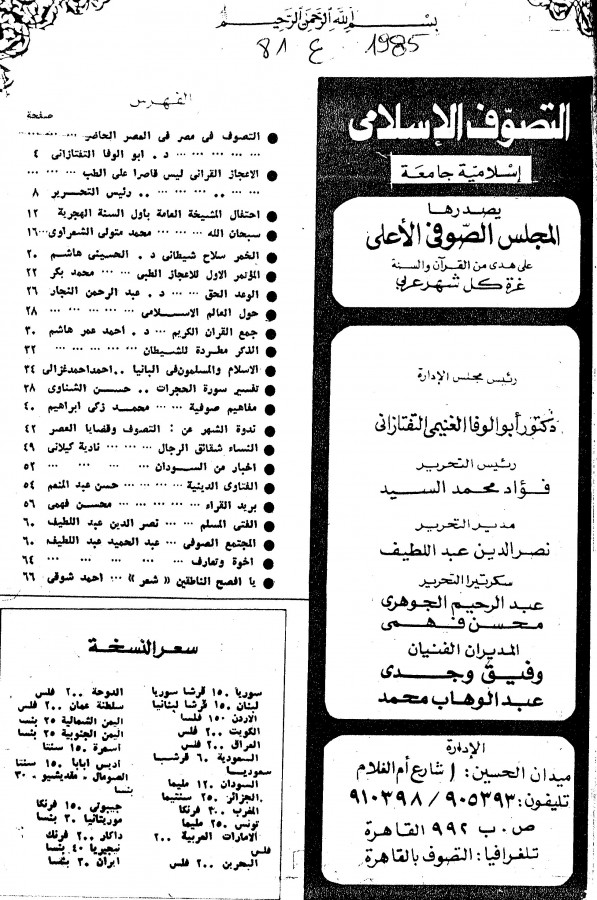 بسم الله الرحمن الرحيم
1985 ع 81
التصوف الإسلامى
إسلامية جامعة
يصدرها
المجلس الصوفى الأعلى
على هدى من القرآن والسنة
غرة كل شهر عربى
رئيس مجلس الإدارة
دكتور أبو الوفا الغنيمى التفتازانى
رئيس التحرير
فؤاد محمد السيد
مدير التحرير
نصر الدين عبد اللطيف
سكرتيرا التحرير
عبد الرحيم الجوهرى
محسن فهمى
المديران الفنيان
وفيق وجدى
عبد الوهاب محمد
الإدارة
ميدان الحسين: ١ شارع أم الغلام
تليفون: ٩٠٥٣٩٣ / ٩١٠٣٩٨
ص. ب ٩٩٢ القاهرة
تلغرافيا: التصوف بالقاهرة
الفهرس
صفحة
● التصوف فى مصر فى العصر الحاضر ... ... ...
... ... ... ... د. ابو الوفا التفتازانى ٤
● الاعجاز القرآنى ليس قاصرا على الطب ... ...
... .. ... ... ... .. رئيس التحرير ٨
● احتفال المشيخة العامة باول السنة الهجرية ١٢
● سبحان الله ... ... محمد متولى الشعراوى ... ١٦
● الخمر سلاح شيطانى . د. الحسينى هاشم ٢٠
● المؤتمر الاول للاعجاز الطبى ... محمد بكر ٢٢
● الوعد الحق ... د. عبد الرحمن النجار ٢٦
● حول العالم الاسلامى ... ... ... ... ٢٨
● جمع القرآن الكريم ... د. احمد عمر هاشم ٣٠
● الذكر مطردة للشيطان ... ... ... ... ٣٢
● الاسلام والمسلمون فى البانيا .. احمد احمد غزالى ٣٤
● تفسير سورة الحجرات .. حسن الشناوى ٣٨
● مفاهيم صوفية ... ... محمد زكى ابراهيم ٤٠
● ندوة الشهر عن : التصوف وقضايا العصر ٤٢
● النساء شقائق الرجال ... ... نادية كيلانى ٤٩
● اخبار من السودان ... ... ... ... ٥٢
● الفتاوى الدينية ... ... ... حسن عبد المنعم ٥٤
● بريد القراء ... ... ... ... محسن فهمى ٥٦
● الفتى المسلم ... ... نصر الدين عبد اللطيف ٦٠
● المجتمع الصوفى ... عبد الحميد عبد اللطيف ٦٠
● اخوة وتعارف ... ... ... ... ... ٦٤
● يا افصح الناطقين « شعر » ... احمد شوقى ٦٦
سعر النسخة
سوريا ١٥٠ قرشا سوريا
لبنان ١٥٠ قرشا لبنانيا
الاردن ١٥٠ فلسا
الكويت ٢٠٠ فلس
العراق ٢٠٠ فلس
السعودية ٦ قرشا
سعوديا
السودان ١٢ مليما
الجزائر ٢٥٠ سنتيما
المغرب ٣٠٠ فرنكا
تونس ٢٥٠ مليما
الامارات العربية ٢٠٠
فلس
البحرين ٢٠٠ فلس
الدوحة ٢٠٠ فلس
سلطنة عمان ٢٠٠ فلس
اليمن الشمالية ٢٥ بنسا
اليمن الجنوبية ٢٥ بنسا
اسمرة ١٥٠ سنتا
اديس ابابا ١٥٠ سنتا
الصومال . مقديشيو ٣٠
بنسا
جيبوتى ١٥٠ فرنكا
موريتانيا ٣٠ بنسا
داكار ٢٠٠ فرنك
نيجيريا ٤٠ بنسا
ايران ٣٠ بنسا